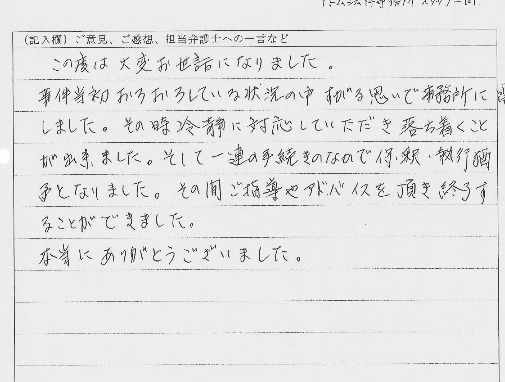 (記入欄)ご意見、ご感想、担当弁護士への一言など
この度は大変お世話になりました。
事件当初おろおろしている状況の中すがる思いで事務所に
しました。その時冷静に対応していただき落ち着くこと
が出来ました。そして一連の手続きのなかで保釈・執行猶
予となりました。その間ご指導やアドバイスを頂き終了す
ることができました。
本当にありがとうございました。